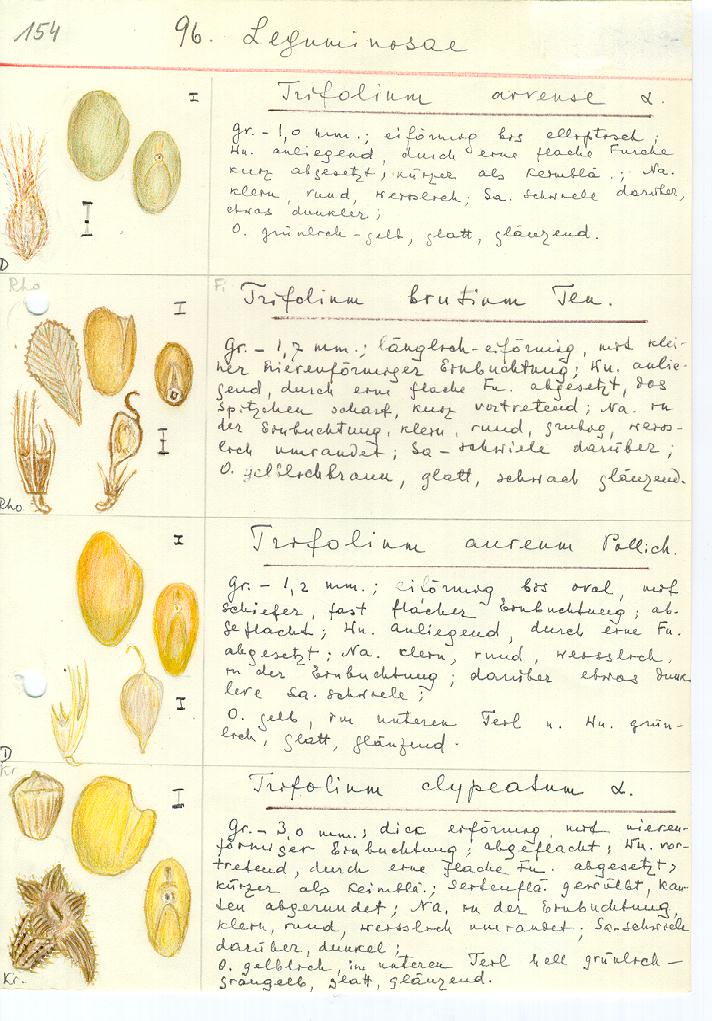 154
96. Leguminosae
Trifolium arvense L.
Gr. - 1,0 mm.; eiförmig bis elliptisch;
Wu. anliegend, durch eine flache Furche
kurz abgesetzt; kürzer als Keimblä.; Na.
klein, rund, weisslich; Sa. schwiele darüber,
etwas dunkler;
O. grünlich-gelb, glatt, glänzend.
D
Rho
Fi
Trifolium brutium Ten.
Gr. - 1,7 mm.; länglich-eiförmig, mit klei-
ner nierenförmiger Einbuchtung; Wu. anlie-
gend, durch eine flache Fu. abgesetzt, das
Spitzchen scharf, kurz vortretend; Na. in
der Einbuchtung, klein, rund, grubig, weiss-
lich umrandet; Sa-schwiele darüber;
O. gelblichbraun, glatt, schwach glänzend.
Rho
Trifolium aureum Pollich.
Gr. - 1,2 mm.; eiförmig bis oval, mit
schiefer, fast flacher Einbuchtung; ab-
geflacht; Wu. anliegend, durch eine Fu.
abgesetzt; Na. klein, rund, weisslich,
in der Einbuchtung; darüber etwas dunk
lere Sa. schwiele;
O. gelb, im unteren Teil u. Wu. grün-
lich, glatt, glänzend.
D
Kr
Trifolium clypeatum L.
Gr. - 3,0 mm.; dick eiförmig, mit nieren-
förmiger Einbuchtung; abgeflacht; Wu. vor-
tretend, durch eine flache Fu. abgesetzt,
kürzer als Keimblä.; Seitenflä. gewölbt, Kan-
ten abgerundet; Na. in der Einbuchtung,
klein, rund, weisslich umrandet; Sa-schwiele
darüber, dunkel;
O. gelblich, im unteren Teil hell grünlich-
graugelb, glatt, glänzend.
Kr.